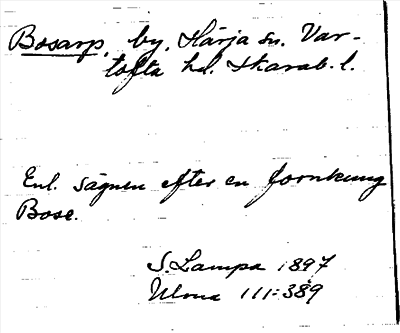 Bosarp, by, Härja sn. Var-
tofta hd. Skarab. l.
Enl. sägnen efter en fornkung
Bose.
S. Lampa 1897
Ulma 111:389